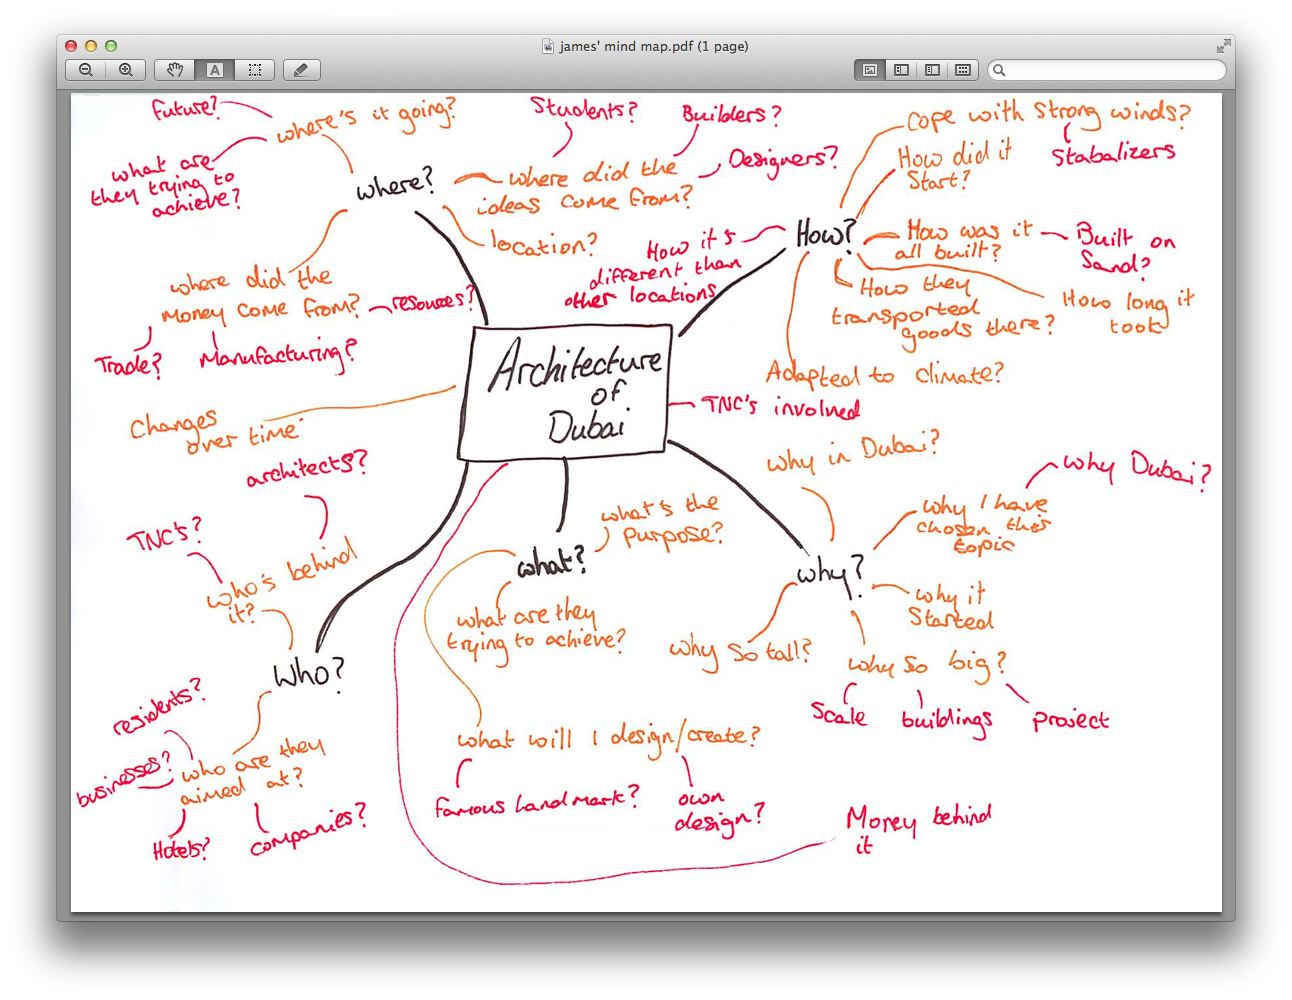 james' mind map.pdf (1 page)
Future?
where's it going?
what are
they trying to
achieve?
where?
Students?
Builders?
Designers?
where did the
ideas come from?
location?
where did the
money come from?
resources?
Trade?
Manufacturing?
Cope with strong winds?
Stabalizers
How did it
Start?
How?
How it's
different than
other locations
How was it
all built?
Built on
Sand?
How they
transported
goods there?
How long it
took
Adapted to climate?
Architecture
of
Dubai
TNC's involved
Changes
over time
architects?
TNC's?
who's behind
it?
Who?
residents?
businesses?
who are they
aimed at?
Hotels?
companies?
what?
what's the
purpose?
what are they
trying to achieve?
what will I design/create?
famous landmark?
own
design?
why in Dubai?
why Dubai?
why I have
chosen this
topic
why?
why it
Started
why so tall?
why so big?
Scale
buildings
project
Money behind
it